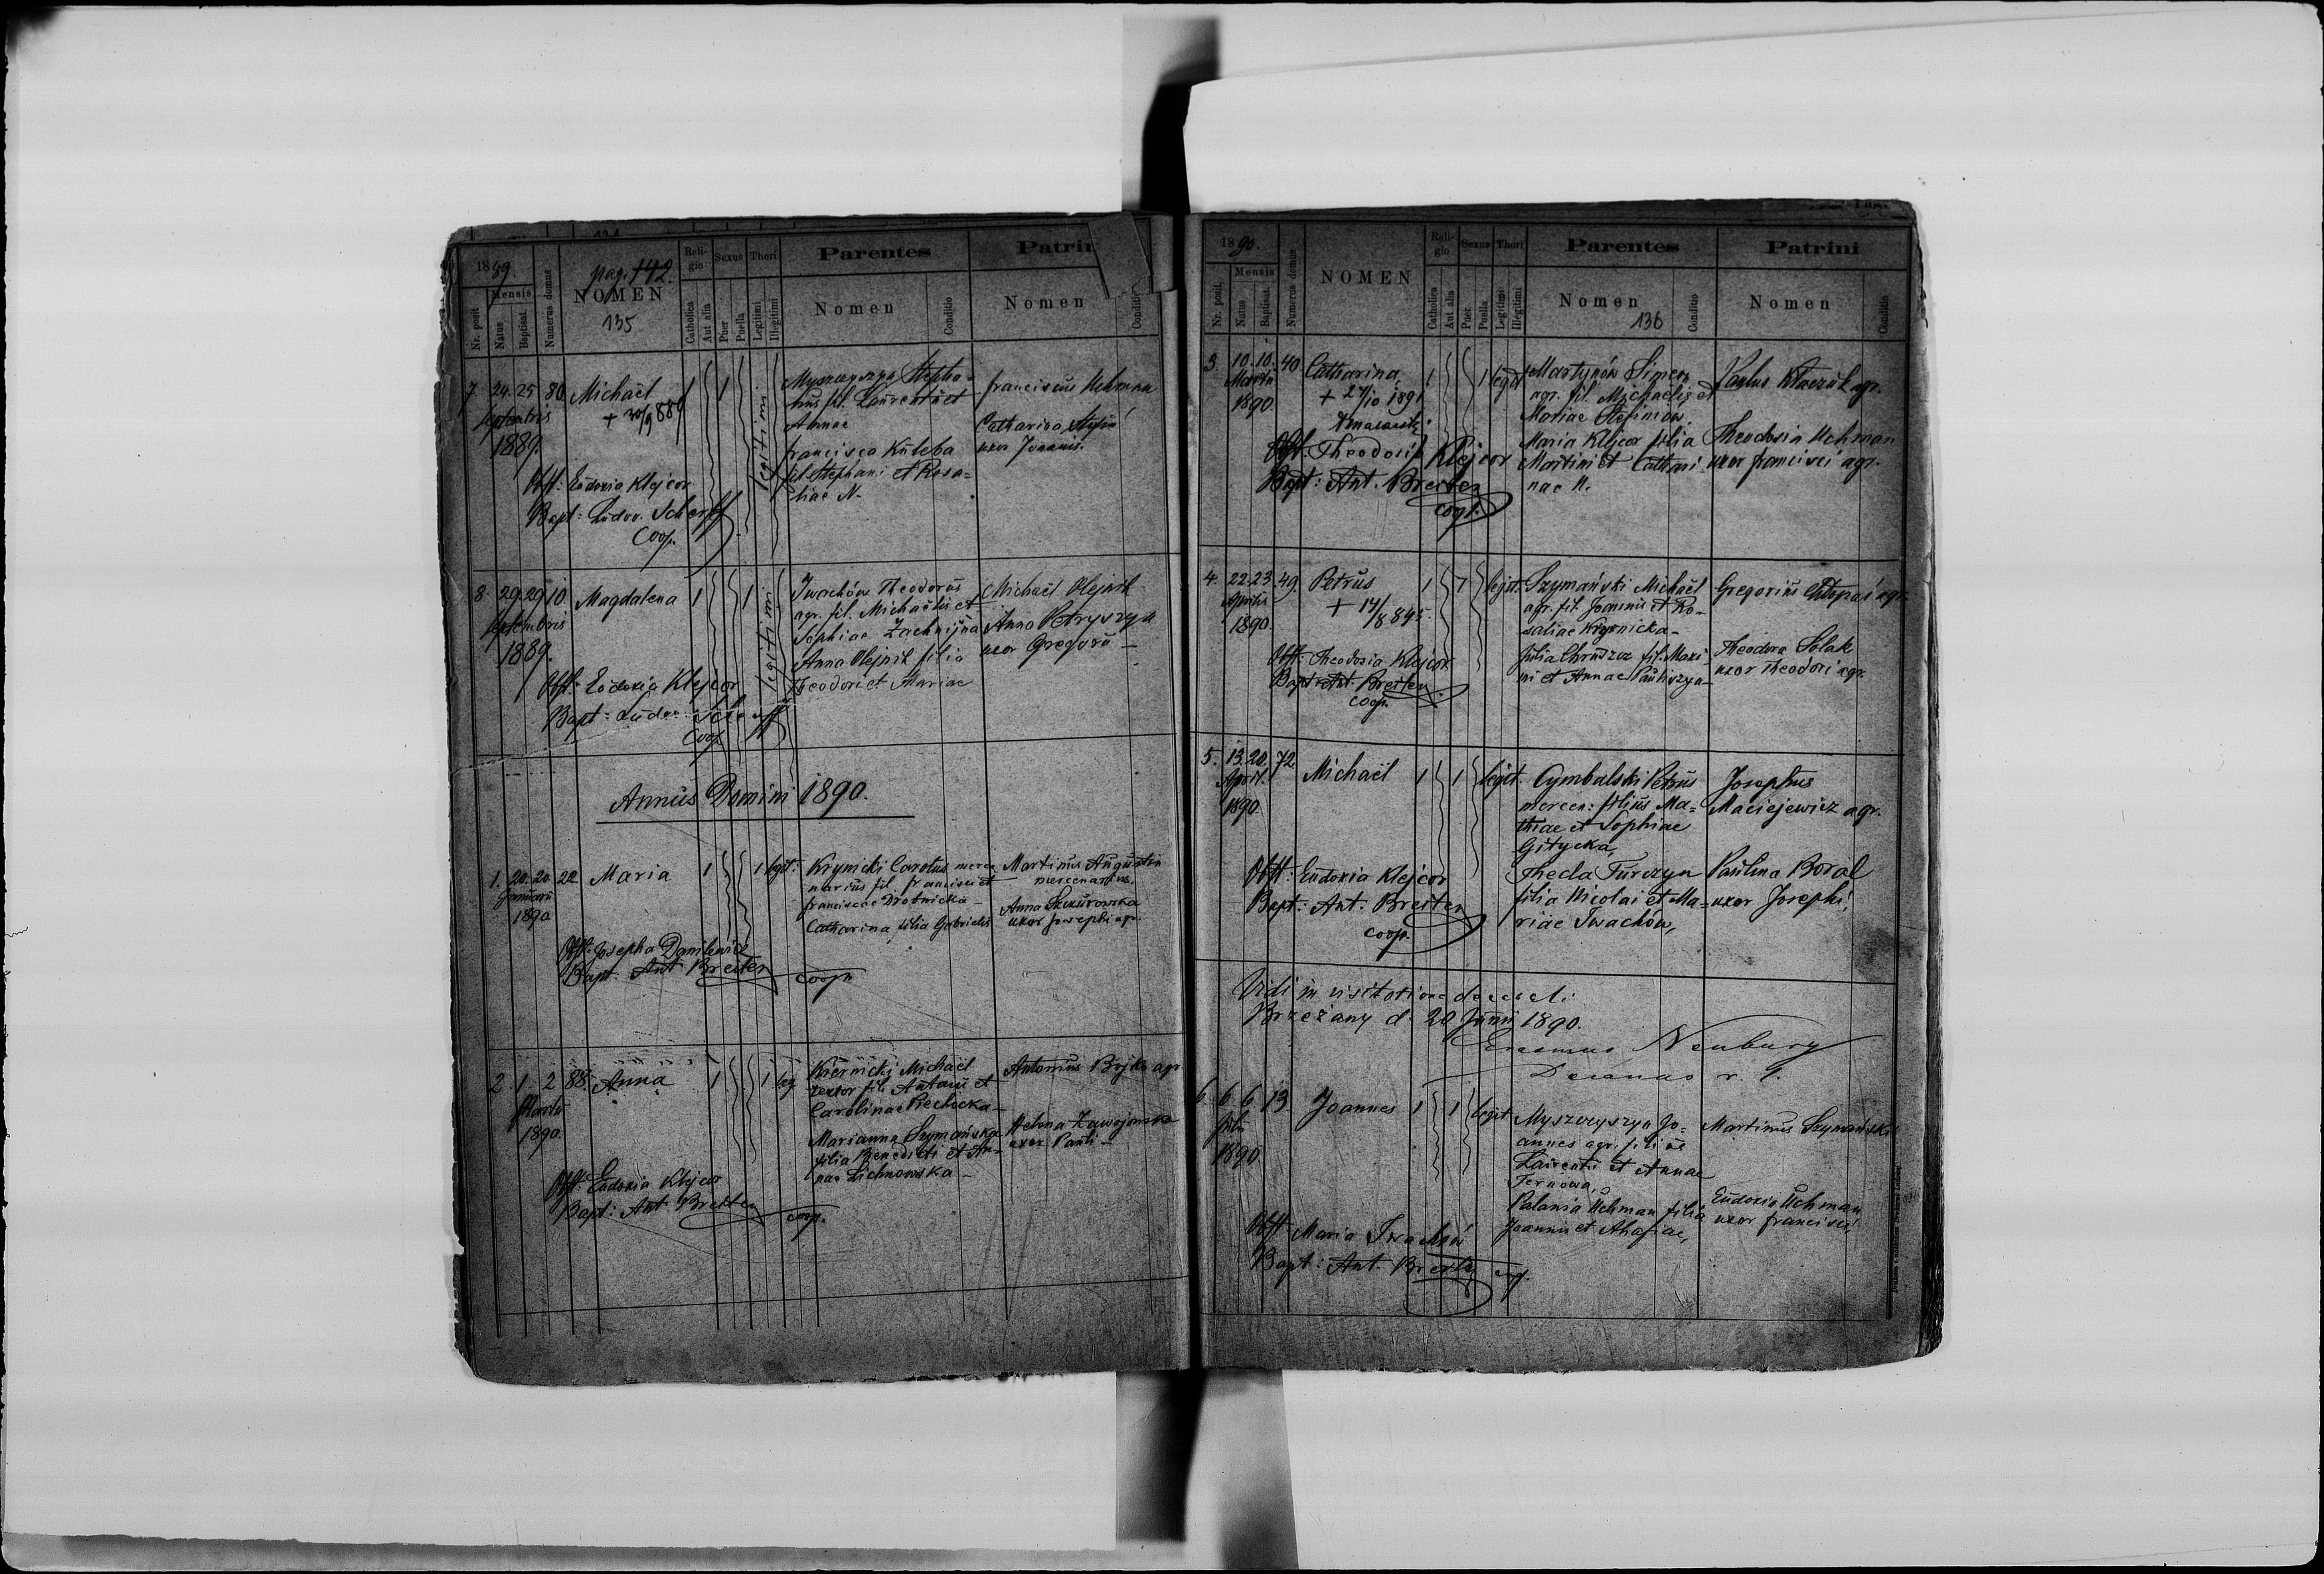 1889.
pag. 142.
NOMEN
135
Nr. posit
Mensis
Natus
Baptisat.
Numerus domus
Religio
Catholica
Aut alia
Sexus
Puer
Puella
Thori
Legitimi
Illegitimi
Parentes
Nomen
Conditio
Patrin
Nomen
7. 24. 25 80 Michaël 1 1 legitimi
Septembris
1889.
+ 30/9 889
Myszczyszyn Stepha-
nus fil. Laurentii et
Annae
Francisca Kuleba
fil. Stephani et Rosa-
liae N.
Franciscus Uchman
Catharina
uxor Joannis.
Obst: Eudoxia Klejcor
Bapt: Ludov. Scherff
Coop.
8. 29. 29 10 Magdalena 1 1 legitimi
Septembris
1889.
Iwachów Theodorus
agr. fil. Michaëlis et
Sophiae
Anna Olejnik filia
Theodori et Mariae
Michaël Olejnik
Anna Petryszyn
uxor Gregorii
Obst: Eudoxia Klejcor
Bapt: Ludov. Scherff
Coop.
Annus Domini 1890.
1. 20. 20. 22 Maria 1 1 legit:
Januarii
1890
Krynicki Carolus merce
narius fil. Francisci et
Franciscae Drotnicka
Catharina filia Gabrielis
Martinus Augustin
mercenarius.
Anna
uxor Josephi agr.
Obst: Josepha Danilewicz
Bapt: Ant. Breiter coop.
2. 1. 2 88. Anna 1 1 leg
Martii
1890.
Kiernicki Michaël
textor fil. Antonii et
Carolinae Piechocka
Marianna Szymańska
filia Benedicti et An-
nae Lichnowska
Antonius Bojko agr
Helena
uxor Pauli
Obst: Eudoxia Klejcor
Bapt: Ant. Breiter coop.
1890.
Nr. posit.
Mensis
Natus
Baptisat.
Numerus domus
NOMEN
Religio
Catholica
Aut alia
Sexus
Puer
Puella
Thori
Legitimi
Illegitimi
Parentes
Nomen
136
Conditio
Patrini
Nomen
Conditio
3. 10. 10. 40 Catharina, 1 1 legit
Martii
1890.
+ 27/10 1891
Martynów Simeon
agr. fil. Michaëlis et
Mariae Stefinów
Maria Klejcor filia
Martini et Cathari
nae N.
Paulus agr.
Theodosia Uchman
uxor Francisci agr.
Obst: Theodosia Klejcor
Bapt: Ant. Breiter
coop.
4. 22. 23. 49. Petrus 1 1 legit.
Aprilis
1890.
+ 14/8 895.
Szymański Michaël
agr. fil. Joannis et Ro-
saliae Krynicka
Julia fil. Maxi-
mi et Annae
Gregorius agr.
Theodora Solak
uxor Theodori agr.
Obst: Theodosia Klejcor
Bapt: Ant. Breiter
coop.
5. 13. 20. 72. Michaël 1 1 legit.
April.
1890.
Cymbalski Petrus
mercen: filius Ma-
thiae et Sophiae
Gitycka,
Theda Furczyn
filia Nicolai et Ma-
riae Iwachów,
Josephus
Maciejewicz agr.
Paulina Boral
uxor Josephi,
Obst: Eudoxia Klejcor
Bapt: Ant. Breiter
coop.
Vidi in visitatione decanali
Brzeżany d. 20 Junii 1890.
Erasmus Neuburg
Decanus r. l.
6. 6 6 13. Joannes 1 1 legit
Julii
1890.
Myszczyszyn Jo-
annes agr. filius
Laurentii et Annae
Palania Uchman filia
Joannis et Ahafiae,
Martinus Szymański
Eudoxia Uchman
uxor Francisci,
Obst: Maria Iwachów
Bapt: Ant. Breiter coop.